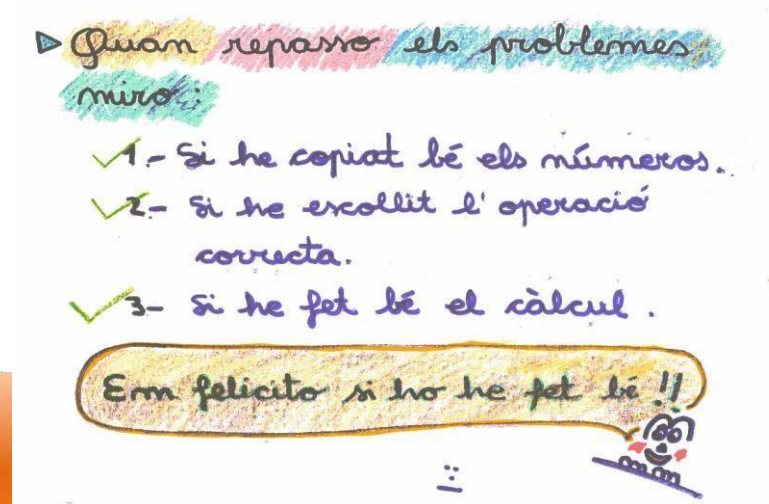 Quan repasso els problemes
miro :
1.- Si he copiat bé els números.
2.- Si he escollit l'operació
correcta.
3- Si he fet bé el càlcul.
Em felicito si ho he fet bé !!